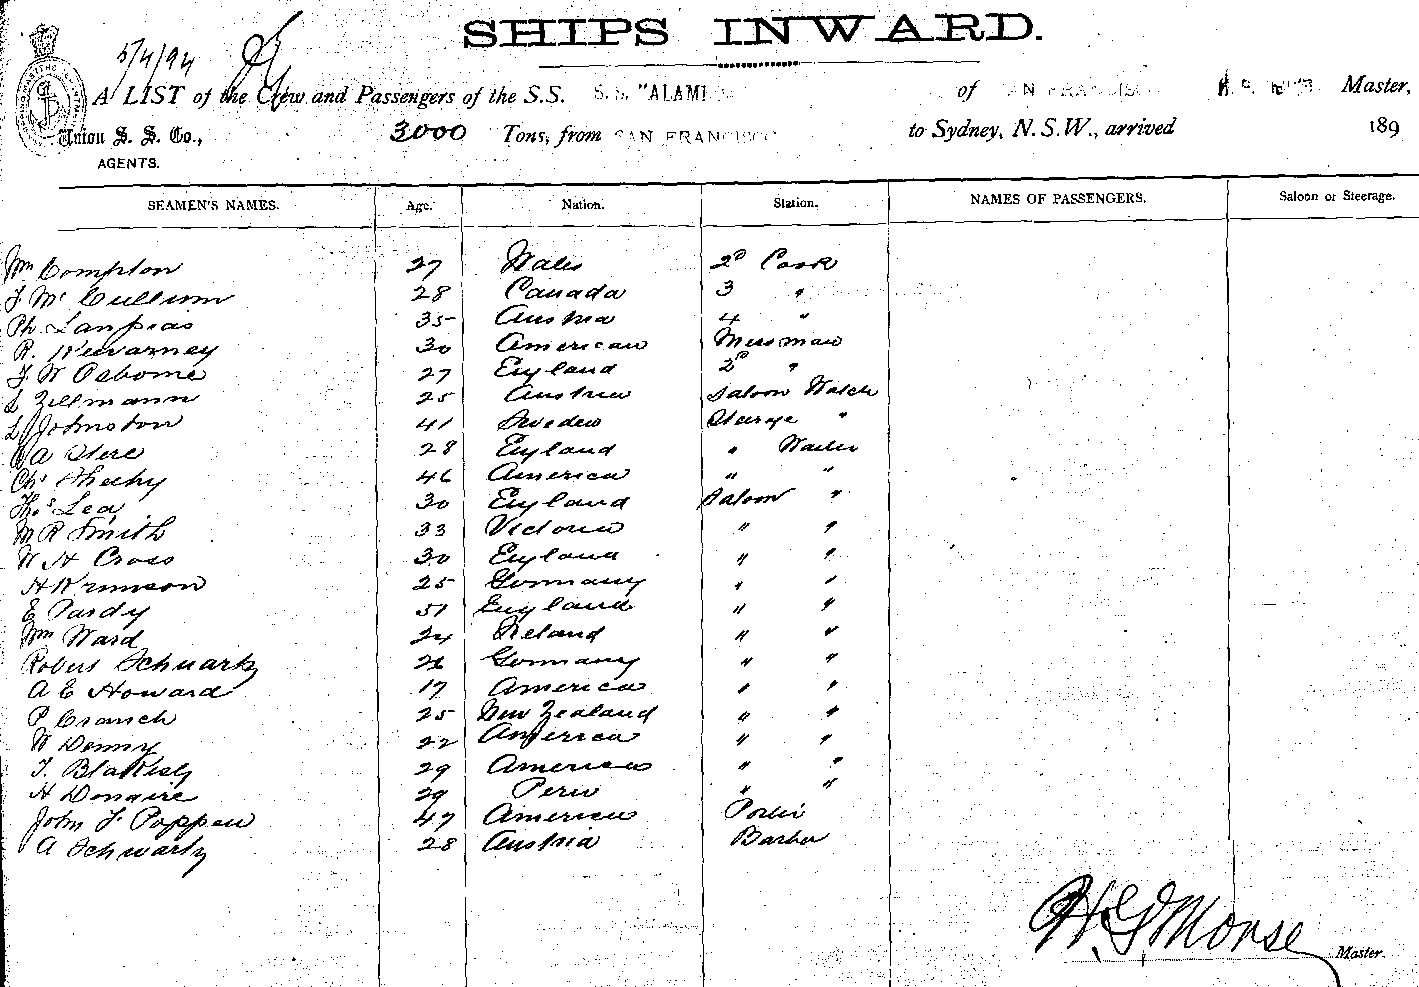 SHIPS INWARD.
5/4/94
A LIST of the Crew and Passengers of the S.S. S.S. "ALAM of SAN FRANCISCO Master,
Union S. S. Co., 3000 Tons, from SAN FRANCISCO to Sydney, N.S.W., arrived 189
AGENTS.
SEAMEN'S NAMES. Age. Nation. Station. NAMES OF PASSENGERS. Saloon or Steerage.
Wm Compton 27 Wales 2d Cook
J Mc Cullum 28 Canada 3 "
Ph. Lanpias 35 Austria 4 "
R. Kewarney 30 American Messman
J. W Osborne 27 England 2d "
L Zillmann 25 Austria Saloon Watch
L Johnston 41 Sweden Sterage "
A Stere 28 England " Waiter
Chs Sheehy 46 America " "
Thos Lea 30 England Saloon "
M R Smith 33 Victoria " "
W H Cross 30 England " "
H Krumson 25 Germany " "
E Pardy 51 England " "
Wm Ward 24 Ireland " "
Robert Schwartz 26 Germany " "
A E Howard 17 America " "
P Cranch 25 New Zealand " "
W Denny 22 America " "
T. Blakesly 29 America " "
H Donaire 29 Peru " "
John F Poppen 47 America Porter
A Schwartz 28 Austria Barber
H. G. Morse Master.